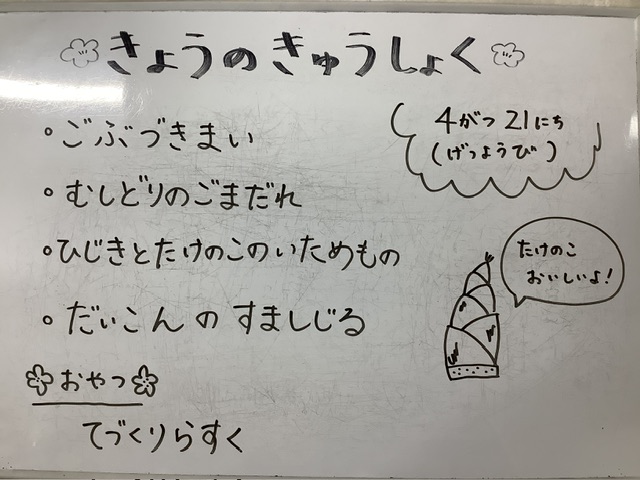 きょうのきゅうしょく
4がつ21にち
(げつようび)
・ごぶづきまい
・むしどりのごまだれ
・ひじきとたけのこのいためもの
・だいこんのすましじる
たけのこ
おいしいよ!
おやつ
てづくりらすく